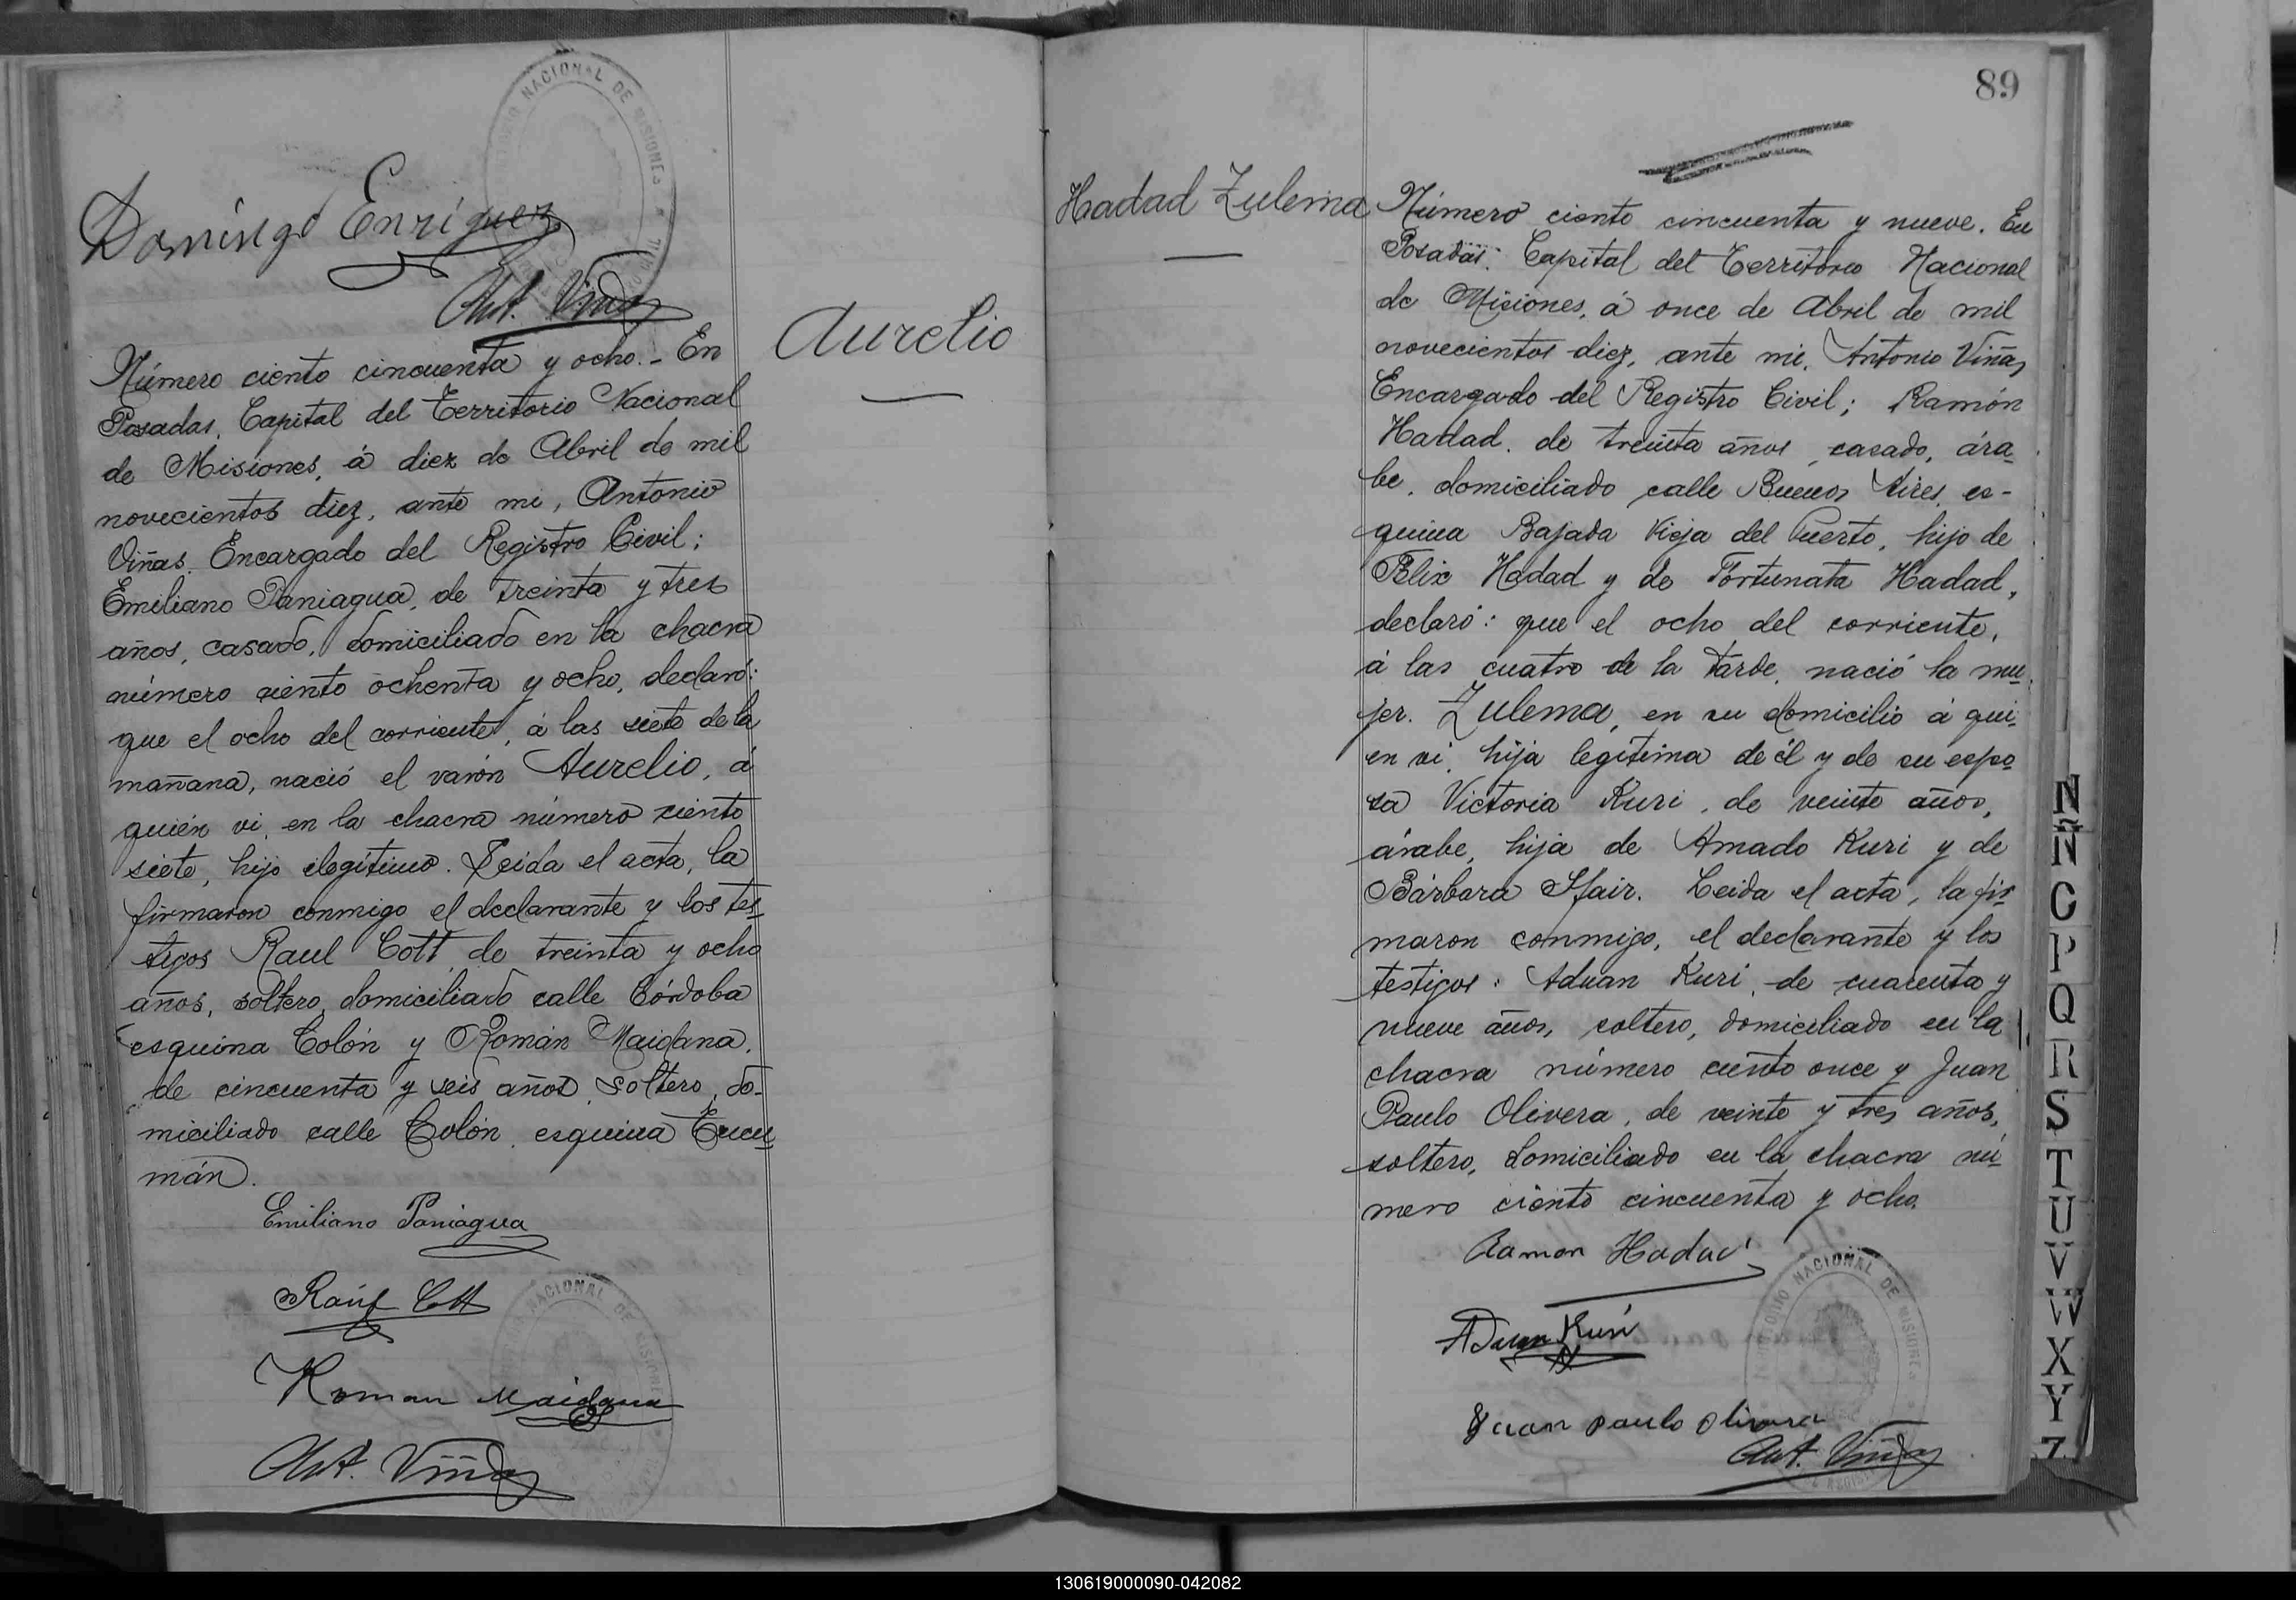 Domingo Enríquez
Ant. Viñas
Número ciento cincuenta y ocho. - En
Posadas, Capital del Territorio Nacional
de Misiones, á diez de Abril de mil
novecientos diez, ante mi, Antonio
Viñas, Encargado del Registro Civil;
Emiliano Paniagua, de treinta y tres
años, casado, domiciliado en la chacra
número ciento ochenta y ocho, declaró:
que el ocho del corriente, á las siete de la
mañana, nació el varón Aurelio, á
quién vi, en la chacra número ciento
siete, hijo ilegítimo. Leida el acta, la
firmaron conmigo el declarante y los tes-
tigos Raul Cott de treinta y ocho
años, soltero, domiciliado calle Córdoba
esquina Colón y Román Maidana,
de cincuenta y seis años, soltero, do-
miciliado calle Colón, esquina Tucu-
mán.
Emiliano Paniagua
Raúl Cott
Roman Maidana
Ant. Viñas
Aurelio
89
Hadad Zulema
Número ciento cincuenta y nueve. En
Posadas, Capital del Territorio Nacional
de Misiones, á once de Abril de mil
novecientos diez, ante mi, Antonio Viñas,
Encargado del Registro Civil; Ramón
Hadad, de treinta años, casado, ára-
be, domiciliado calle Buenos Aires, es-
quina Bajada Vieja del Puerto, hijo de
Felix Hadad y de Fortunata Hadad,
declaró: que el ocho del corriente,
á las cuatro de la tarde, nació la mu-
jer. Zulema, en su domicilio á qui-
en vi, hija legítima de él y de su espo-
sa Victoria Kuri, de veinte años,
árabe, hija de Amado Kuri y de
Bárbara Sfair. Leida el acta, la fir-
maron conmigo, el declarante y los
testigos: Aduan Kuri, de cuarenta y
nueve años, soltero, domiciliado en la
chacra número ciento once y Juan
Paulo Olivera, de veinte y tres años,
soltero, domiciliado en la chacra nú-
mero ciento cincuenta y ocho.
Ramon Hadad
Aduan Kuri
Juan Paulo Olivera
Ant. Viñas
N
Ñ
O
P
Q
R
S
T
U
V
W
X
Y
Z
130619000090-042082